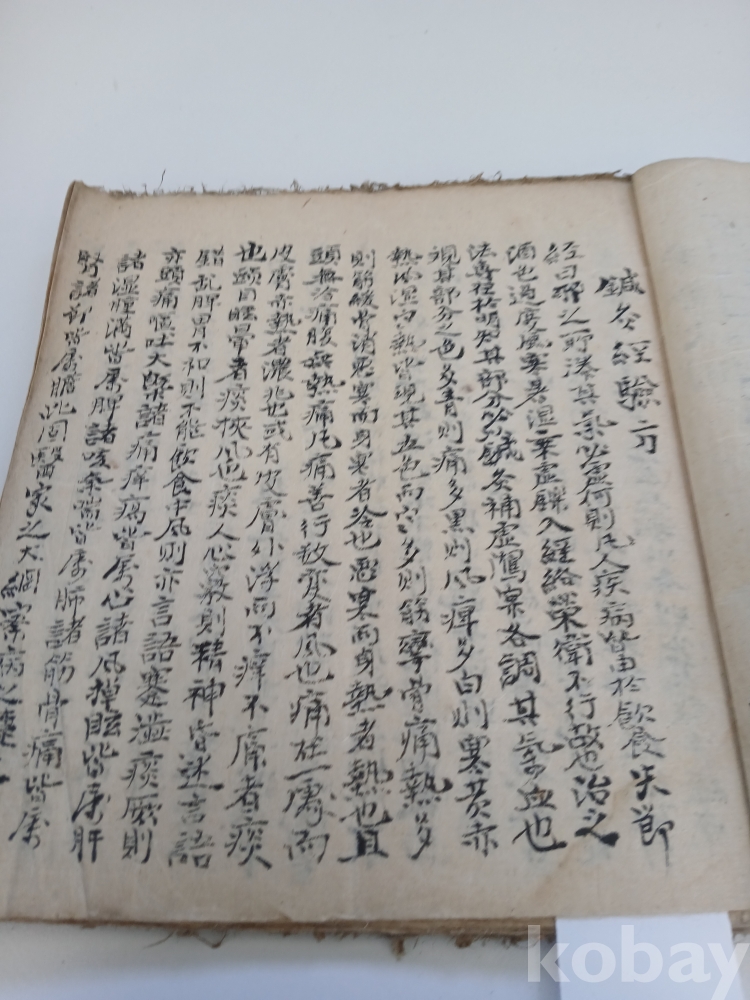 鍼灸經驗方
經曰邪之所湊其氣必虛何則凡人疾病皆由於飮食失節
酒色過度風寒暑濕乘虛鑠入經絡榮衛不行故也治之
法專在於明知其部分必以鍼灸補虛瀉實各調其氣血也
視其部分之色多靑則痛多黑則風痺多白則寒黃赤
熱風濕白熱也現其五色而寒多則筋攣骨痛熱多
則筋緩骨消惡寒而身寒者冷也惡寒而身熱者熱也且
頭無冷痛腹無熱痛凡痛善行敎變者風也痛在一處而
皮膚赤熱者濃兆也或有皮膚外浮而不痒不痛者痰
也頭目眩暈者痰挾風也痰人心竅則精神昏迷言語
錯乱脾胃不和則不能飮食中風則亦言語蹇澁痰厥則
亦頭痛嘔吐大槩諸痛痒瘍皆屬心諸風掉眩皆屬肝
諸濕腫滿皆屬脾諸咳氣喘皆屬肺諸筋骨痛皆屬
腎諸 皆屬膽此固醫家之大綱 病之